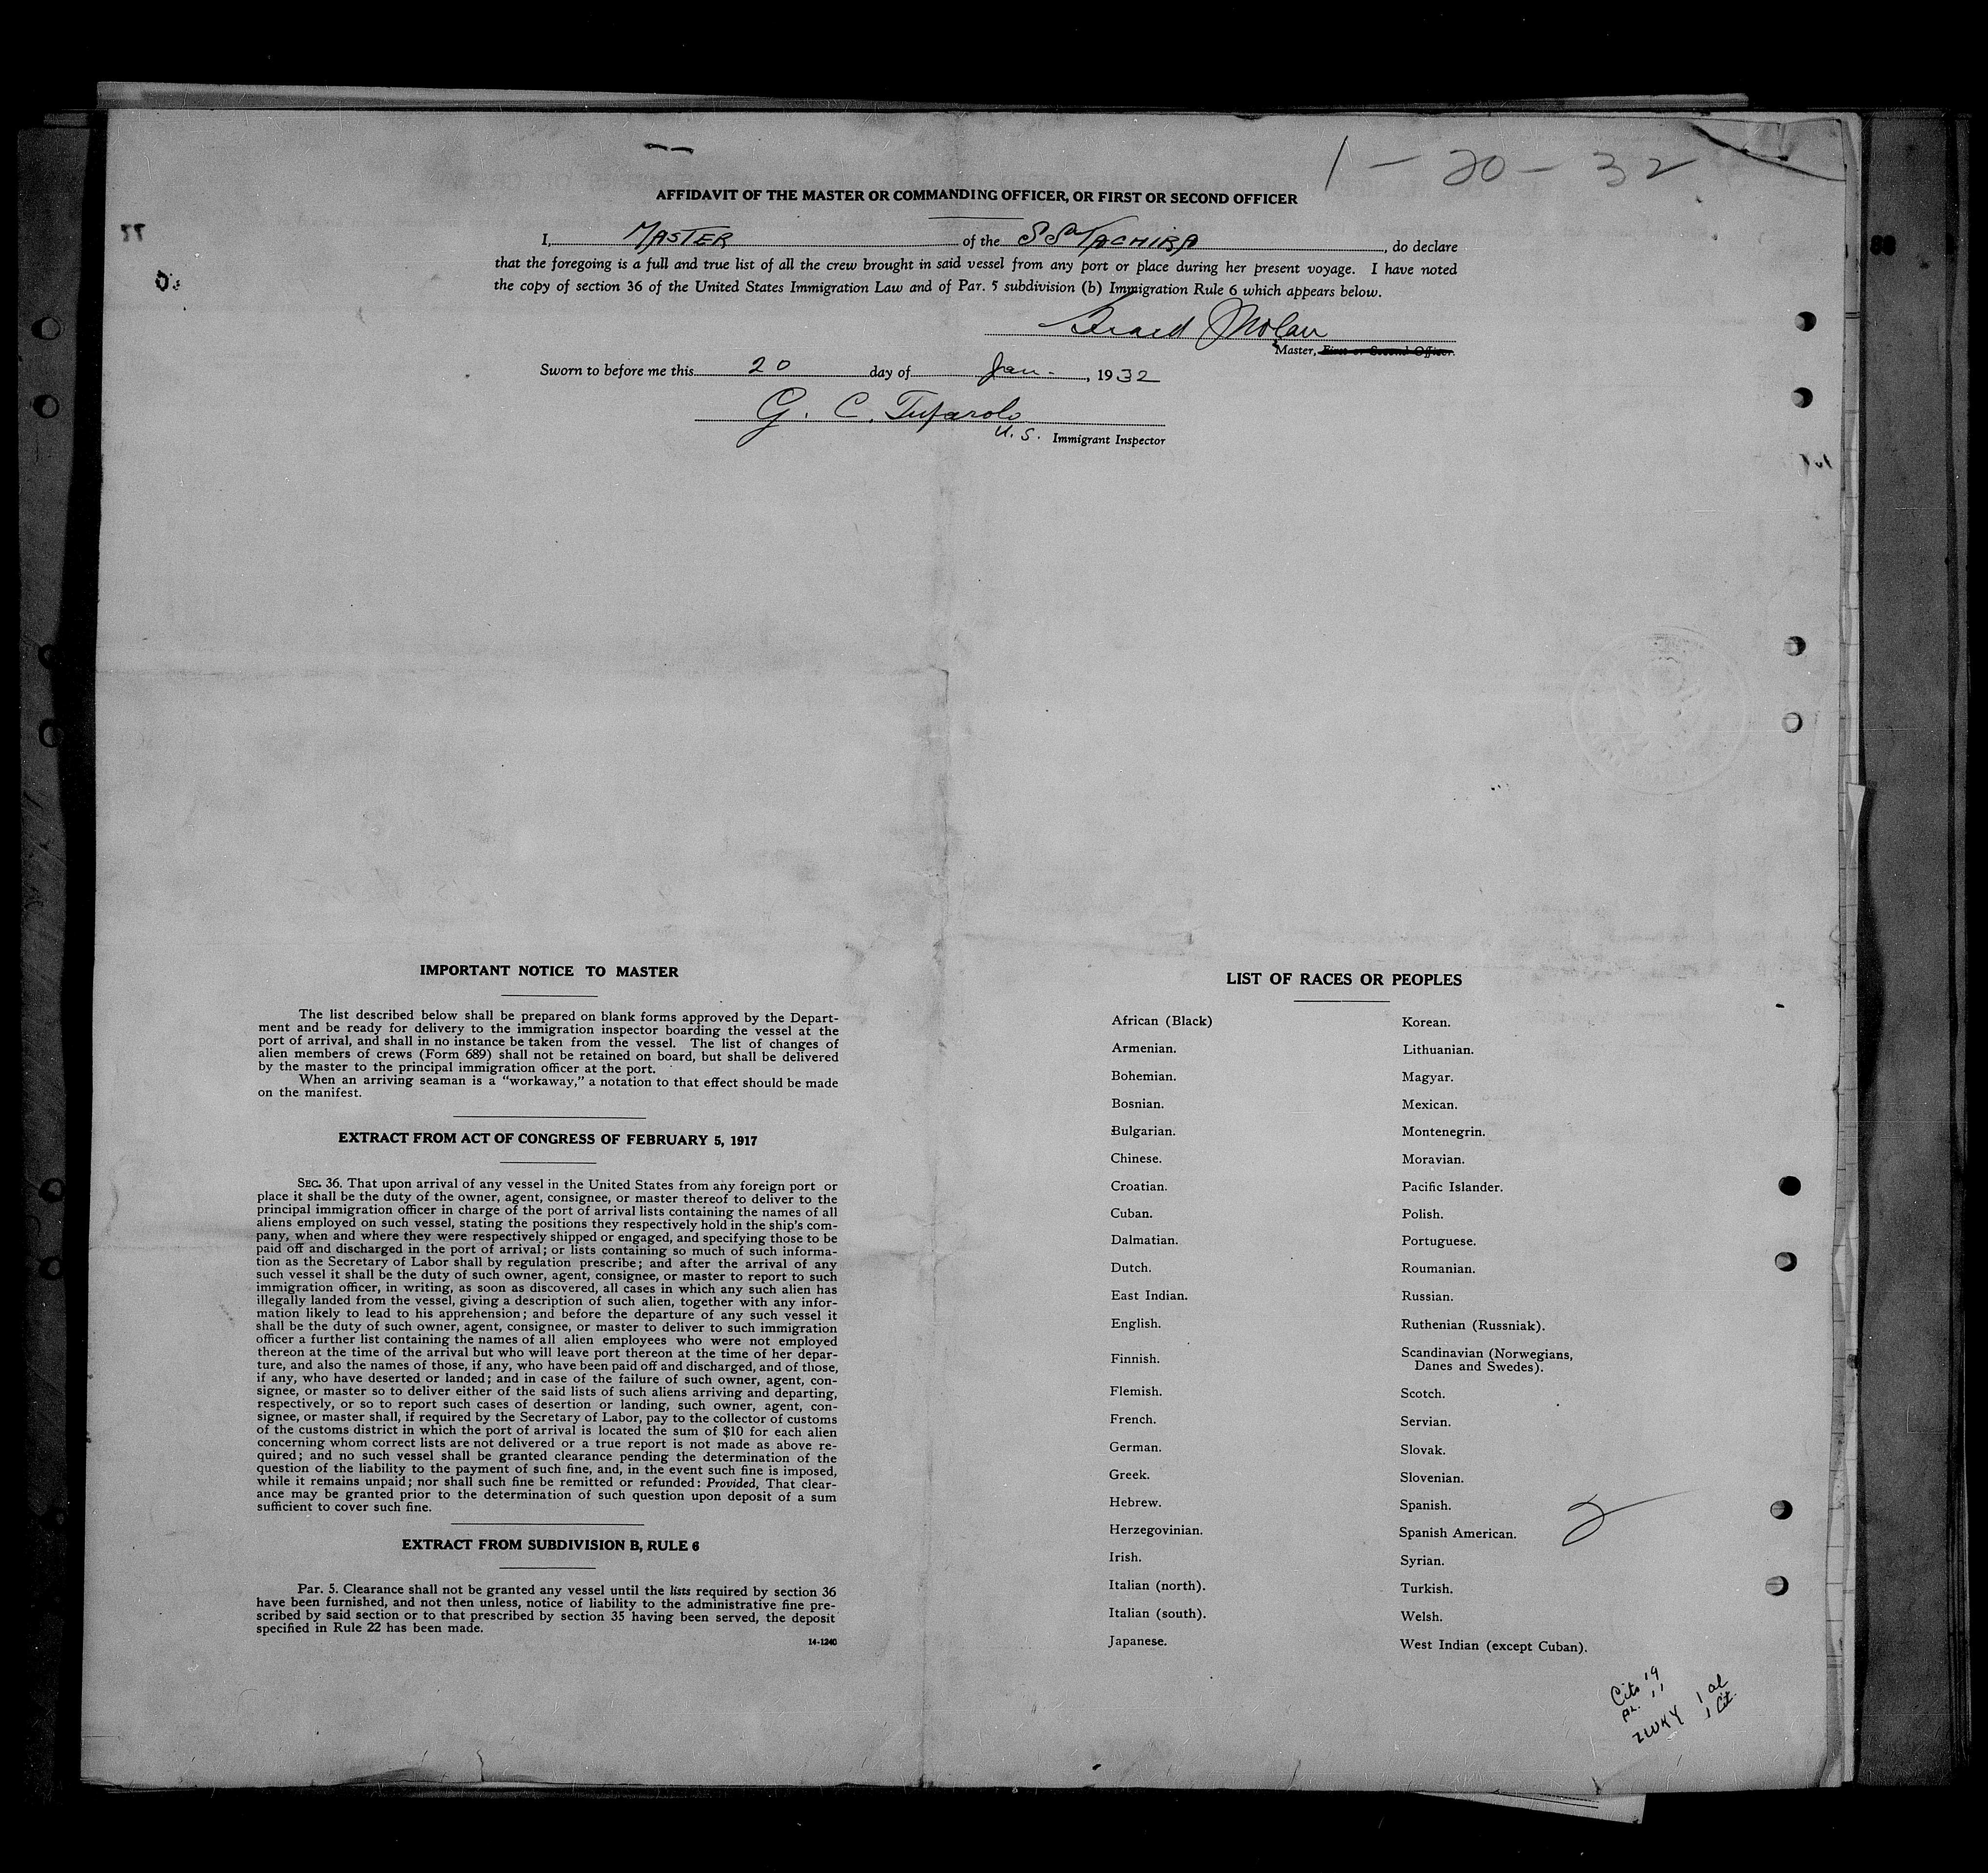 1-20-32
AFFIDAVIT OF THE MASTER OR COMMANDING OFFICER, OR FIRST OR SECOND OFFICER
I, MASTER of the SS TACHIRA, do declare
that the foregoing is a full and true list of all the crew brought in said vessel from any port or place during her present voyage. I have noted
the copy of section 36 of the United States Immigration Law and of Par. 5 subdivision (b) Immigration Rule 6 which appears below.
Master, First or Second Officer.
Sworn to before me this 20 day of Jan. , 1932
G. C. Tufarolo
U.S. Immigrant Inspector
IMPORTANT NOTICE TO MASTER
The list described below shall be prepared on blank forms approved by the Depart-
ment and be ready for delivery to the immigration inspector boarding the vessel at the
port of arrival, and shall in no instance be taken from the vessel. The list of changes of
alien members of crews (Form 689) shall not be retained on board, but shall be delivered
by the master to the principal immigration officer at the port.
When an arriving seaman is a “workaway,” a notation to that effect should be made
on the manifest.
EXTRACT FROM ACT OF CONGRESS OF FEBRUARY 5, 1917
SEC. 36. That upon arrival of any vessel in the United States from any foreign port or
place it shall be the duty of the owner, agent, consignee, or master thereof to deliver to the
principal immigration officer in charge of the port of arrival lists containing the names of all
aliens employed on such vessel, stating the positions they respectively hold in the ship's com-
pany, when and where they were respectively shipped or engaged, and specifying those to be
paid off and discharged in the port of arrival; or lists containing so much of such informa-
tion as the Secretary of Labor shall by regulation prescribe; and after the arrival of any
such vessel it shall be the duty of such owner, agent, consignee, or master to report to such
immigration officer, in writing, as soon as discovered, all cases in which any such alien has
illegally landed from the vessel, giving a description of such alien, together with any infor-
mation likely to lead to his apprehension; and before the departure of any such vessel it
shall be the duty of such owner, agent, consignee, or master to deliver to such immigration
officer a further list containing the names of all alien employees who were not employed
thereon at the time of the arrival but who will leave port thereon at the time of her depar-
ture, and also the names of those, if any, who have been paid off and discharged, and of those,
if any, who have deserted or landed; and in case of the failure of such owner, agent, con-
signee, or master so to deliver either of the said lists of such aliens arriving and departing,
respectively, or so to report such cases of desertion or landing, such owner, agent, con-
signee, or master shall, if required by the Secretary of Labor, pay to the collector of customs
of the customs district in which the port of arrival is located the sum of $10 for each alien
concerning whom correct lists are not delivered or a true report is not made as above re-
quired; and no such vessel shall be granted clearance pending the determination of the
question of the liability to the payment of such fine, and, in the event such fine is imposed,
while it remains unpaid; nor shall such fine be remitted or refunded: Provided, That clear-
ance may be granted prior to the determination of such question upon deposit of a sum
sufficient to cover such fine.
EXTRACT FROM SUBDIVISION B, RULE 6
Par. 5. Clearance shall not be granted any vessel until the lists required by section 36
have been furnished, and not then unless, notice of liability to the administrative fine pre-
scribed by said section or to that prescribed by section 35 having been served, the deposit
specified in Rule 22 has been made.
14-1240
LIST OF RACES OR PEOPLES
African (Black)
Armenian.
Bohemian.
Bosnian.
Bulgarian.
Chinese.
Croatian.
Cuban.
Dalmatian.
Dutch.
East Indian.
English.
Finnish.
Flemish.
French.
German.
Greek.
Hebrew.
Herzegovinian.
Irish.
Italian (north).
Italian (south).
Japanese.
Korean.
Lithuanian.
Magyar.
Mexican.
Montenegrin.
Moravian.
Pacific Islander.
Polish.
Portuguese.
Roumanian.
Russian.
Ruthenian (Russniak).
Scandinavian (Norwegians,
Danes and Swedes).
Scotch.
Servian.
Slovak.
Slovenian.
Spanish.
Spanish American.
Syrian.
Turkish.
Welsh.
West Indian (except Cuban).
2
Cits 19
1 al
2 WKY 1 Cit.